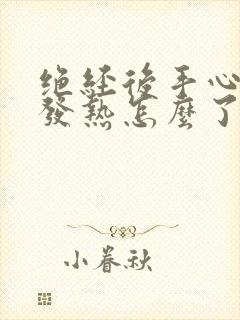 绝經後手心
發熱怎麼了
小眷秋